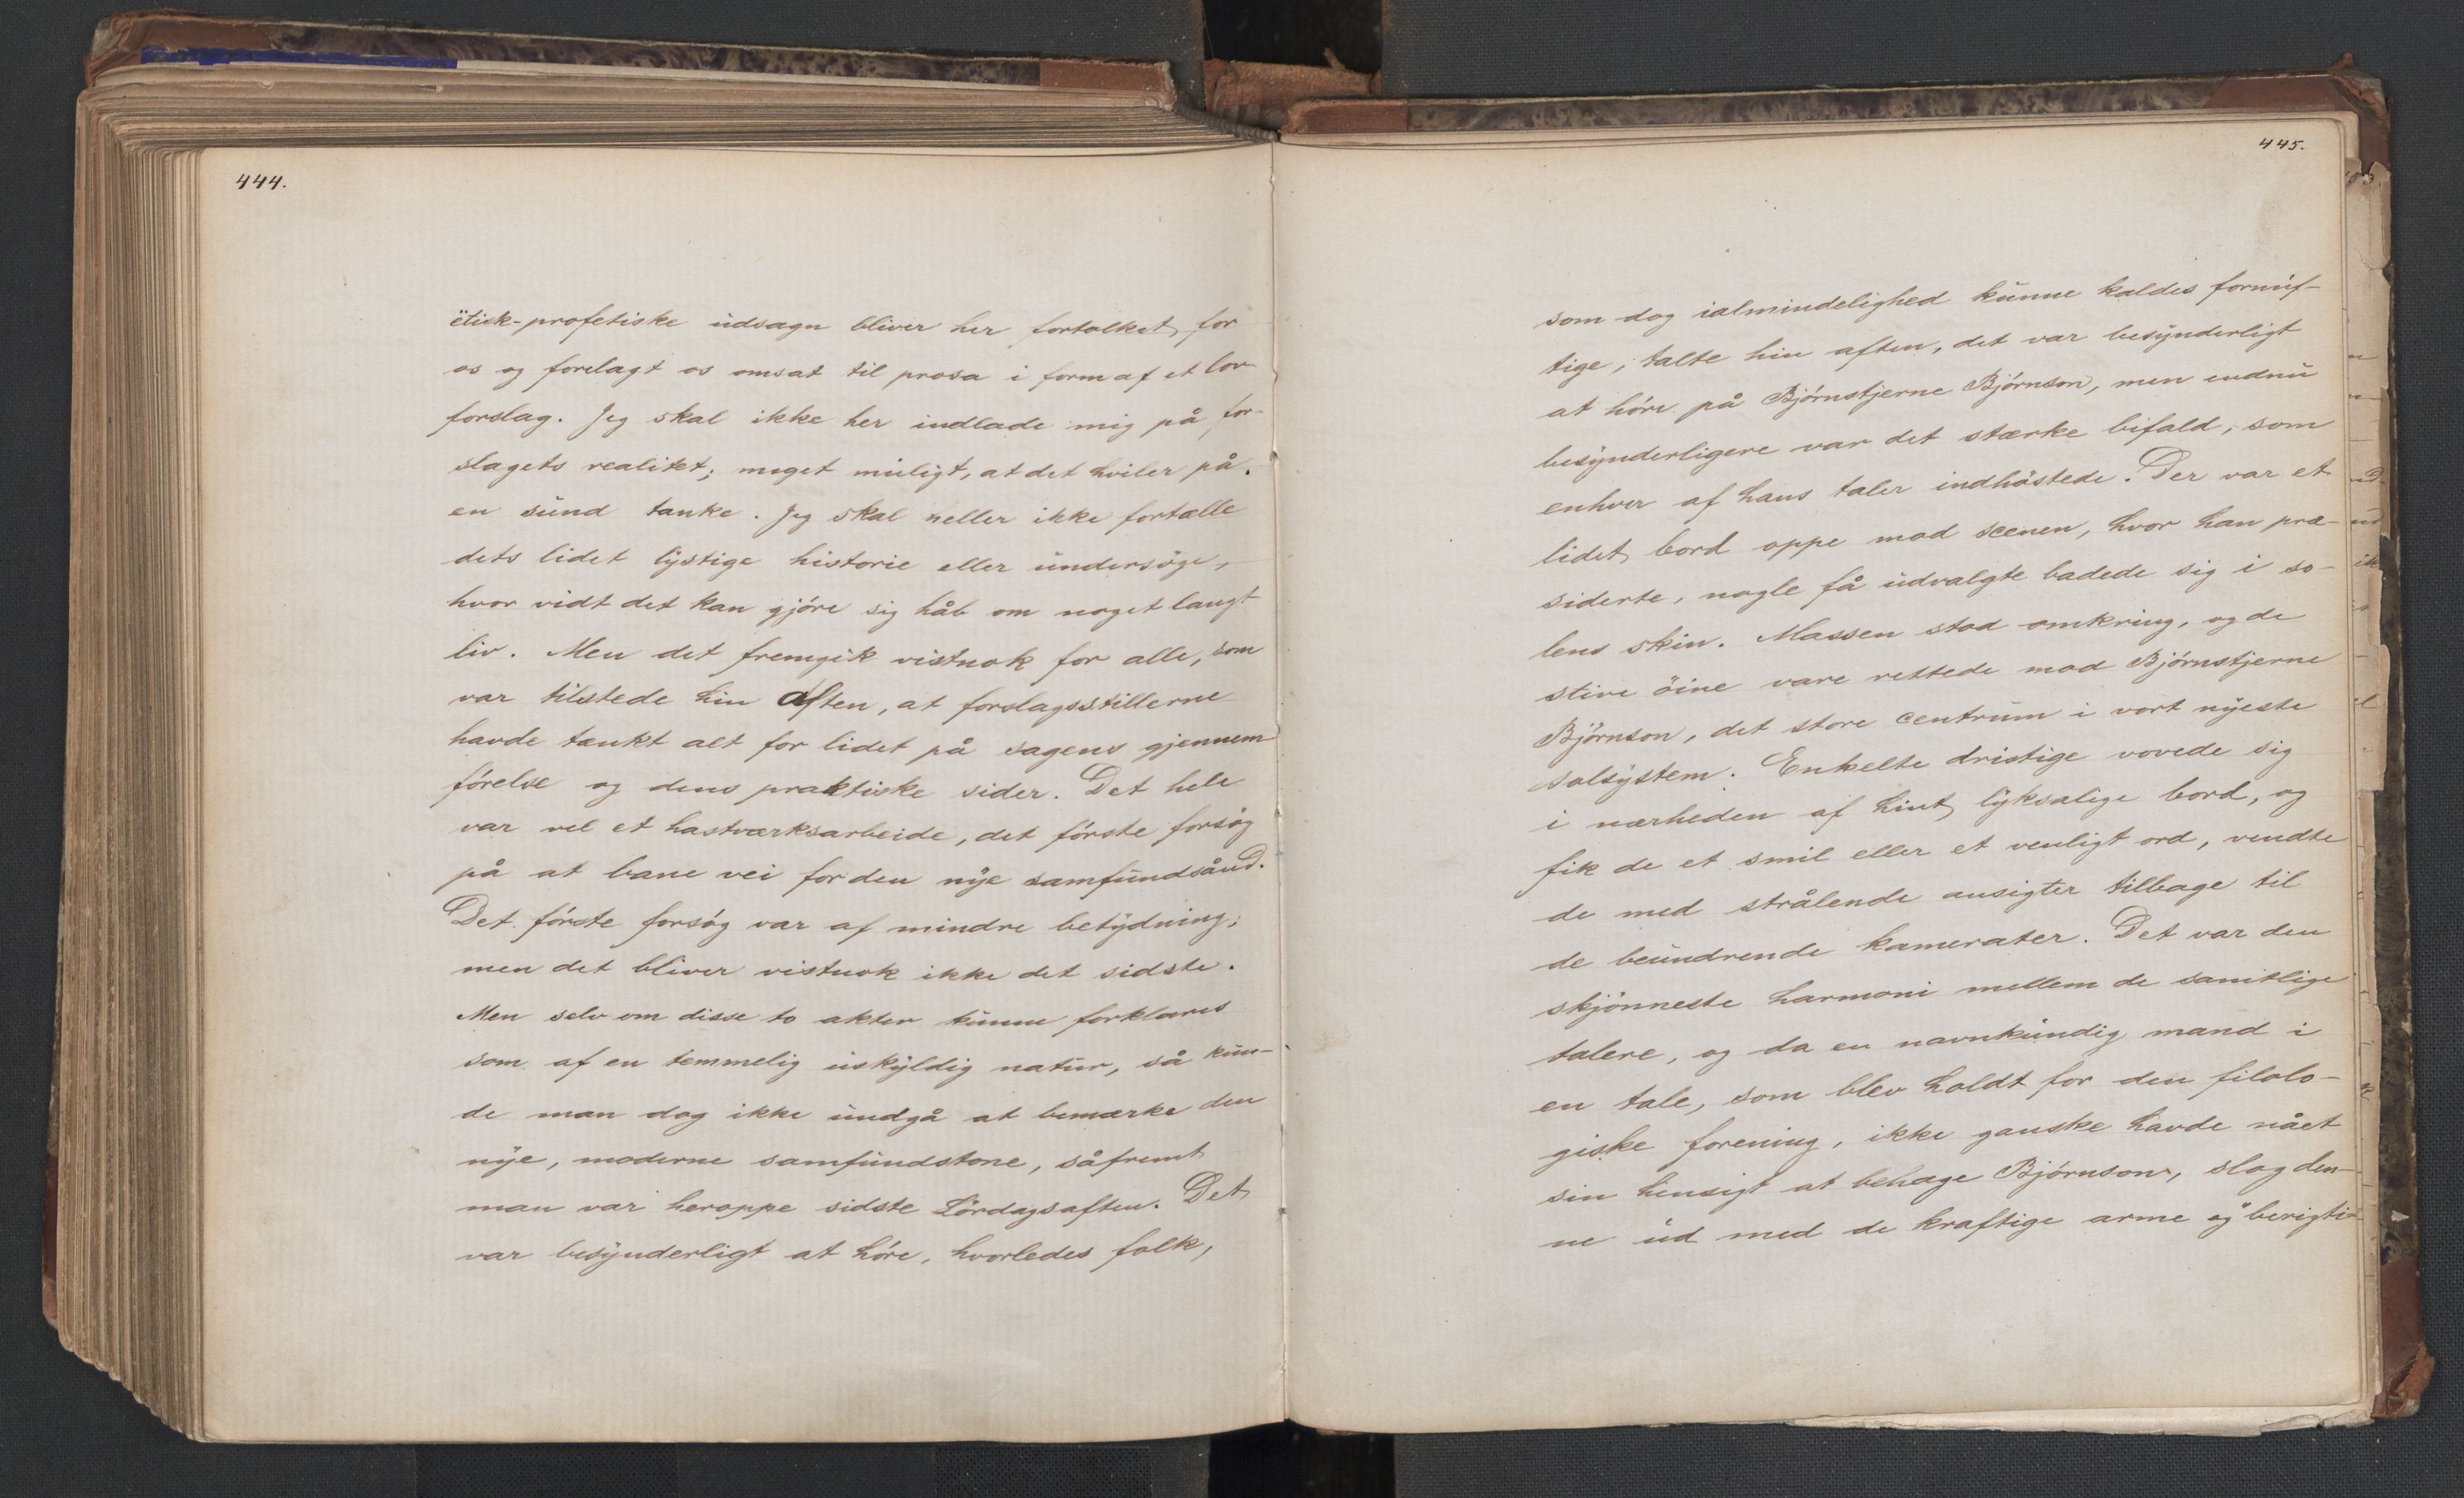 444.
ëtisk-profetiske udsagn bliver her fortolket for
os og forelagt os omsat til prosa i form af et lov
forslag. Jeg skal ikke her indlade mig på for-
slagets realitet; meget muligt, at det hviler på
en sund tanke. Jeg skal heller ikke fortælle
dets lidet lystige historie eller undersöge,
hvor vidt det kan gjöre sig håb om noget langt
liv. Men det fremgik vistnok for alle, som
var tilstede hin Aften, at forslagsstillerne
havde tænkt alt for lidet på sagens gjennem
förelse og dens praktiske sider. Det hele
var vel et hastværksarbeide, det förste forsög
på at bane vei for den nye samfundsånd.
Det förste forsög var af mindre betydning;
men det bliver vistnok ikke det sidste.
Men selv om disse to akter kunne forklares
som af en temmelig uskyldig natur, så kun-
de man dog ikke undgå at bemærke den
nye, moderne samfundstone, såfremt
man var heroppe sidste Lördagsaften. Det
var besynderligt at höre, hvorledes folk,
445.
som dog ialmindelighed kunne kaldes fornuf-
tige, talte hin aften, det var besynderligt
at höre på Björnstjerne Björnson, men endnu
besynderligere var det stærke bifald, som
enhver af hans taler indhöstede. Der var et
lidet bord oppe mod scenen, hvor han præ-
siderte, nogle få udvalgte badede sig i so-
lens skin. Massen stod omkring, og de
stive öine vare rettede mod Björnstjerne
Björnson, det store centrum i vort nyeste
solsystem. Enkelte dristige vovede sig
i nærheden af hint lyksalige bord, og
fik de et smil eller et venligt ord, vendte
de med strålende ansigter tilbage til
de beundrende kamerater. Det var den
skjönneste harmoni mellem de samtlige
talere, og da en navnkundig mand i
en tale, som blev holdt for den filolo-
giske forening, ikke ganske havde nået
sin hensigt at behage Björnson, slog den-
ne ud med de kraftige arme og berigti-